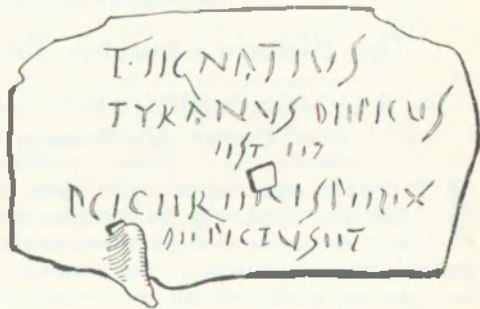 T. IIGNATIVS
TYRANVS DIIFICVS
IIST IIT
P CICIIRIIIVS FIILIX
DIIFICTVS IIT